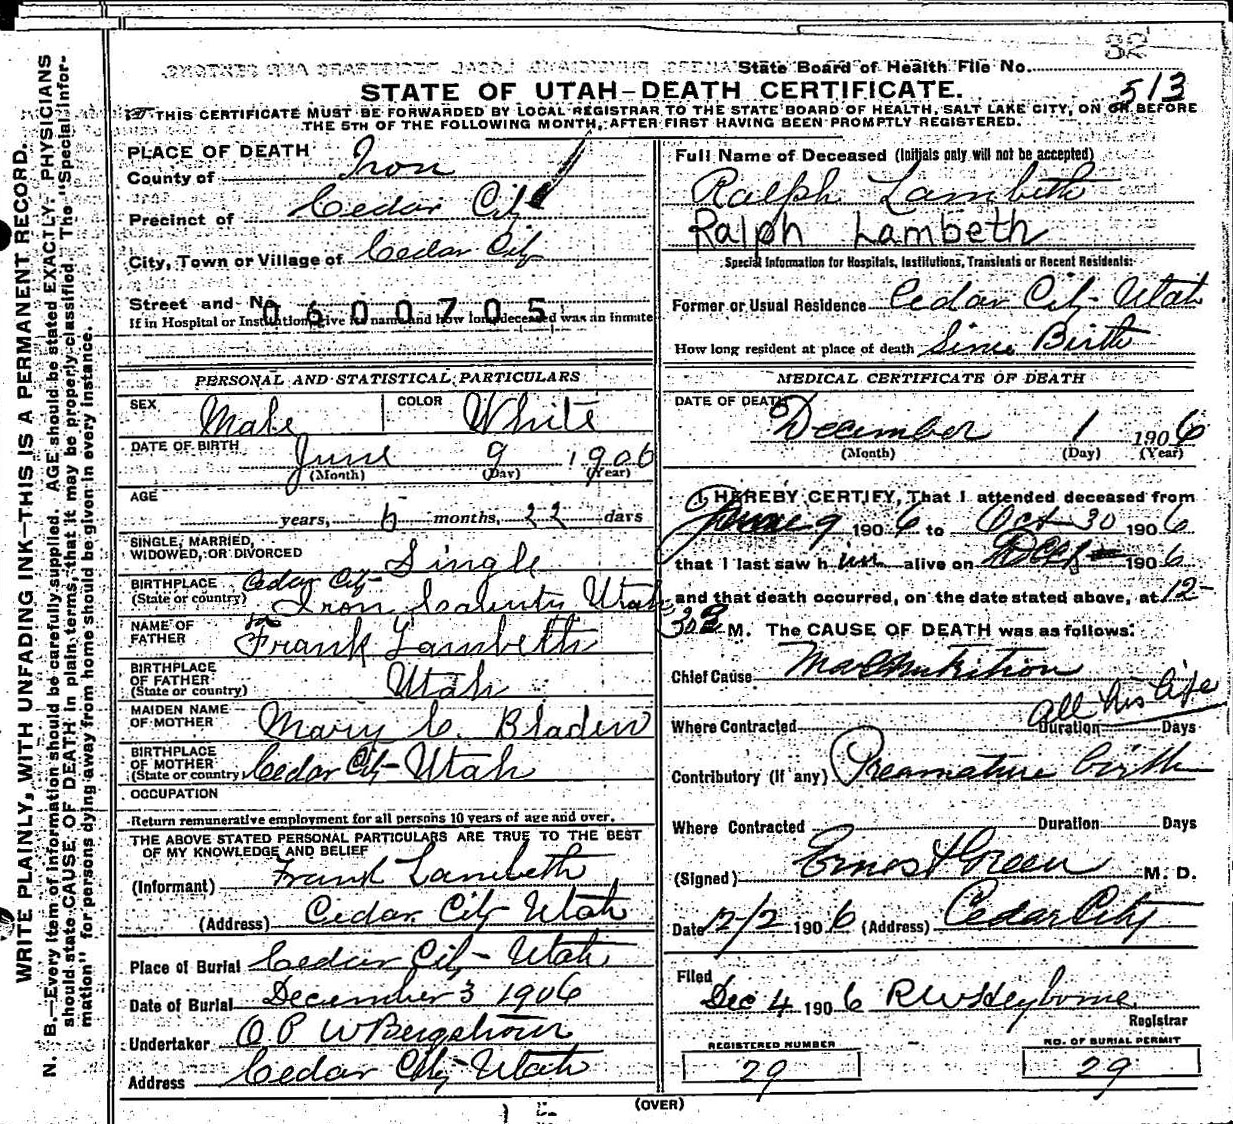 32
State Board of Health File No. 513
STATE OF UTAH-DEATH CERTIFICATE.
THIS CERTIFICATE MUST BE FORWARDED BY LOCAL REGISTRAR TO THE STATE BOARD OF HEALTH, SALT LAKE CITY, ON OR BEFORE
THE 5TH OF THE FOLLOWING MONTH, AFTER FIRST HAVING BEEN PROMPTLY REGISTERED.
WRITE PLAINLY, WITH UNFADING INK—THIS IS A PERMANENT RECORD.
N. B.—Every item of information should be carefully supplied. AGE should be stated EXACTLY. PHYSICIANS
should state CAUSE OF DEATH in plain terms, that it may be properly classified. The "Special Infor-
mation" for persons dying away from home should be given in every instance.
PLACE OF DEATH
County of Iron
Precinct of Cedar City
City, Town or Village of Cedar City
Street and No.
0600705
If in Hospital or Institution, give its name and how long deceased was an inmate
PERSONAL AND STATISTICAL PARTICULARS
SEX Male COLOR White
DATE OF BIRTH June 9 1906
(Month) (Day) (Year)
AGE
years, 6 months, 22 days
SINGLE, MARRIED,
WIDOWED, OR DIVORCED Single
BIRTHPLACE Cedar City
(State or country) Iron County Utah
NAME OF
FATHER Frank Lambeth
BIRTHPLACE
OF FATHER Utah
(State or country)
MAIDEN NAME
OF MOTHER Mary C. Bladen
BIRTHPLACE
OF MOTHER
(State or country) Cedar City-Utah
OCCUPATION
Return remunerative employment for all persons 10 years of age and over.
THE ABOVE STATED PERSONAL PARTICULARS ARE TRUE TO THE BEST
OF MY KNOWLEDGE AND BELIEF
(Informant) Frank Lambeth
(Address) Cedar City Utah
Place of Burial Cedar City- Utah
Date of Burial December 3 1906
Undertaker
Address Cedar City Utah
Full Name of Deceased (Initials only will not be accepted)
Ralph Lambeth
Ralph Lambeth
Special Information for Hospitals, Institutions, Transients or Recent Residents:
Former or Usual Residence Cedar City- Utah
How long resident at place of death Since Birth
MEDICAL CERTIFICATE OF DEATH
DATE OF DEATH
December 1 1906
(Month) (Day) (Year)
I HEREBY CERTIFY, That I attended deceased from
June 9 1906 to Oct 30 1906
that I last saw him alive on 1906
and that death occurred, on the date stated above, at 12-
30 M. The CAUSE OF DEATH was as follows:
Chief Cause Malnutrition
all his life
Where Contracted Duration Days
Contributory (if any) Preamature birth
Where Contracted Duration Days
(Signed) Ernest Green M. D.
Date 12/2 1906 (Address) Cedar City
Filed
Dec 4 1906 R W Heyborne
Registrar
REGISTERED NUMBER
29
NO. OF BURIAL PERMIT
29
(OVER)